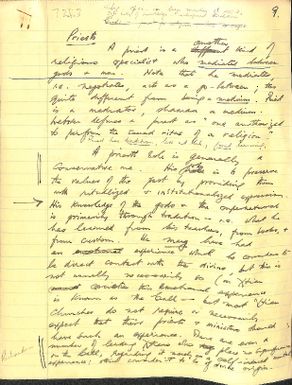 9.
Priests
A priest is a another kind of
religious specialist who mediates between
gods & men. Note that he mediates,
i.e. negotiates, acts as a go-between; this
quite different from being a medium. Priest
is a mediator, shaman a medium.
Webster defines a priest as "one authorized
to perform the sacred rites of a religion"
A priest's role is generally a
conservative one. His role is to preserve
the values of the past by providing them
with ritualized & institutionalized expression.
His knowledge of the gods & the supernatural
is primarily through tradition — i.e. what he
has learned from his teachers, from books, &
from custom. He may have had
an experience which he considers to
be direct contact with the divine, but this is
not usually necessarily so (in Xtian
this emotional experience
is known as the Call — but most Xtian
Churches do not require or necessarily
expect that their priests & ministers should
have such an experience. There are even a
number of leading Xtians who place no significance
on the Call, regarding it merely as
experience; consider it to be of divine origin.